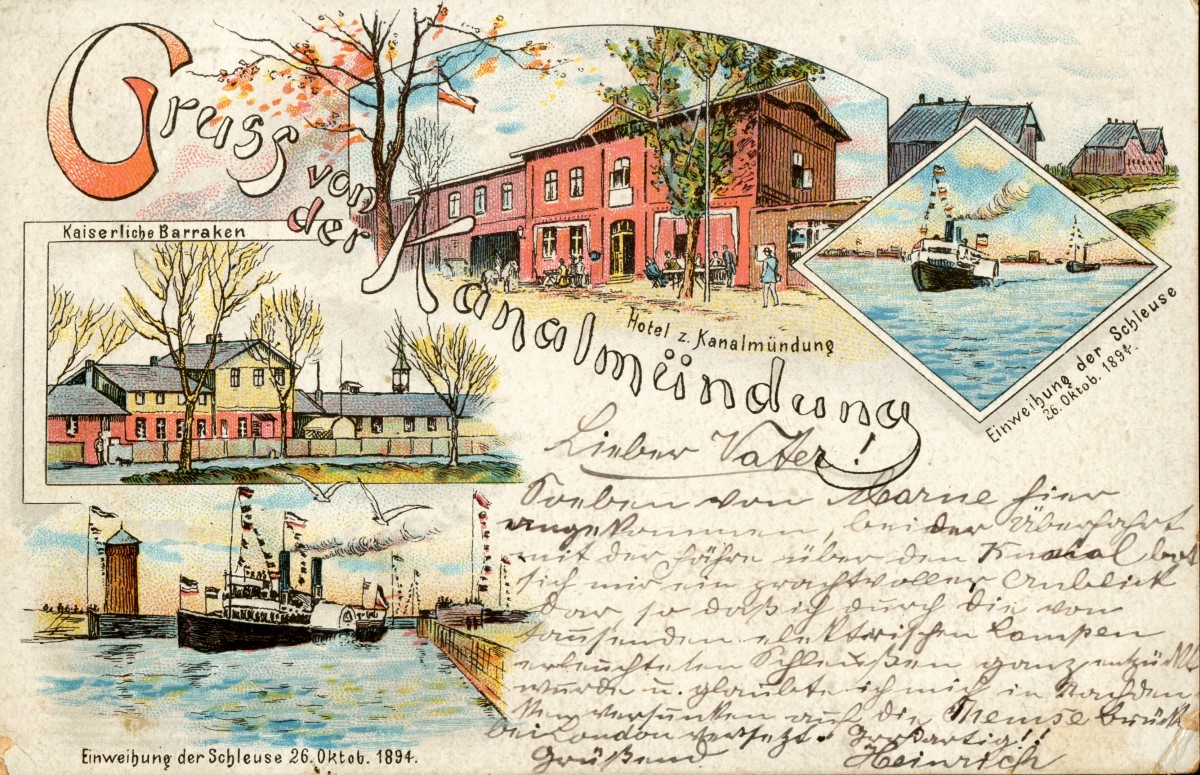 Gruss von der Kanalmündung
Kaiserliche Barraken
Hotel z. Kanalmündung
Einweihung der Schleuse
26. Oktob. 1894.
Einweihung der Schleuse 26. Oktob. 1894.
Lieber Vater!
Soeben von Marne hier
angekommen, bei der Überfahrt
mit der Fähre über den Kanal bot
sich mir ein prachtvoller Anblick
dar, so daß ich durch die von
tausenden elektrischen Lampen
erleuchteten Schleußen ganz entzückt
wurde u. glaubte ich mich in
versunken auf die Themse brück
bei London versetzt. Großartig!!
Grüßend Heinrich